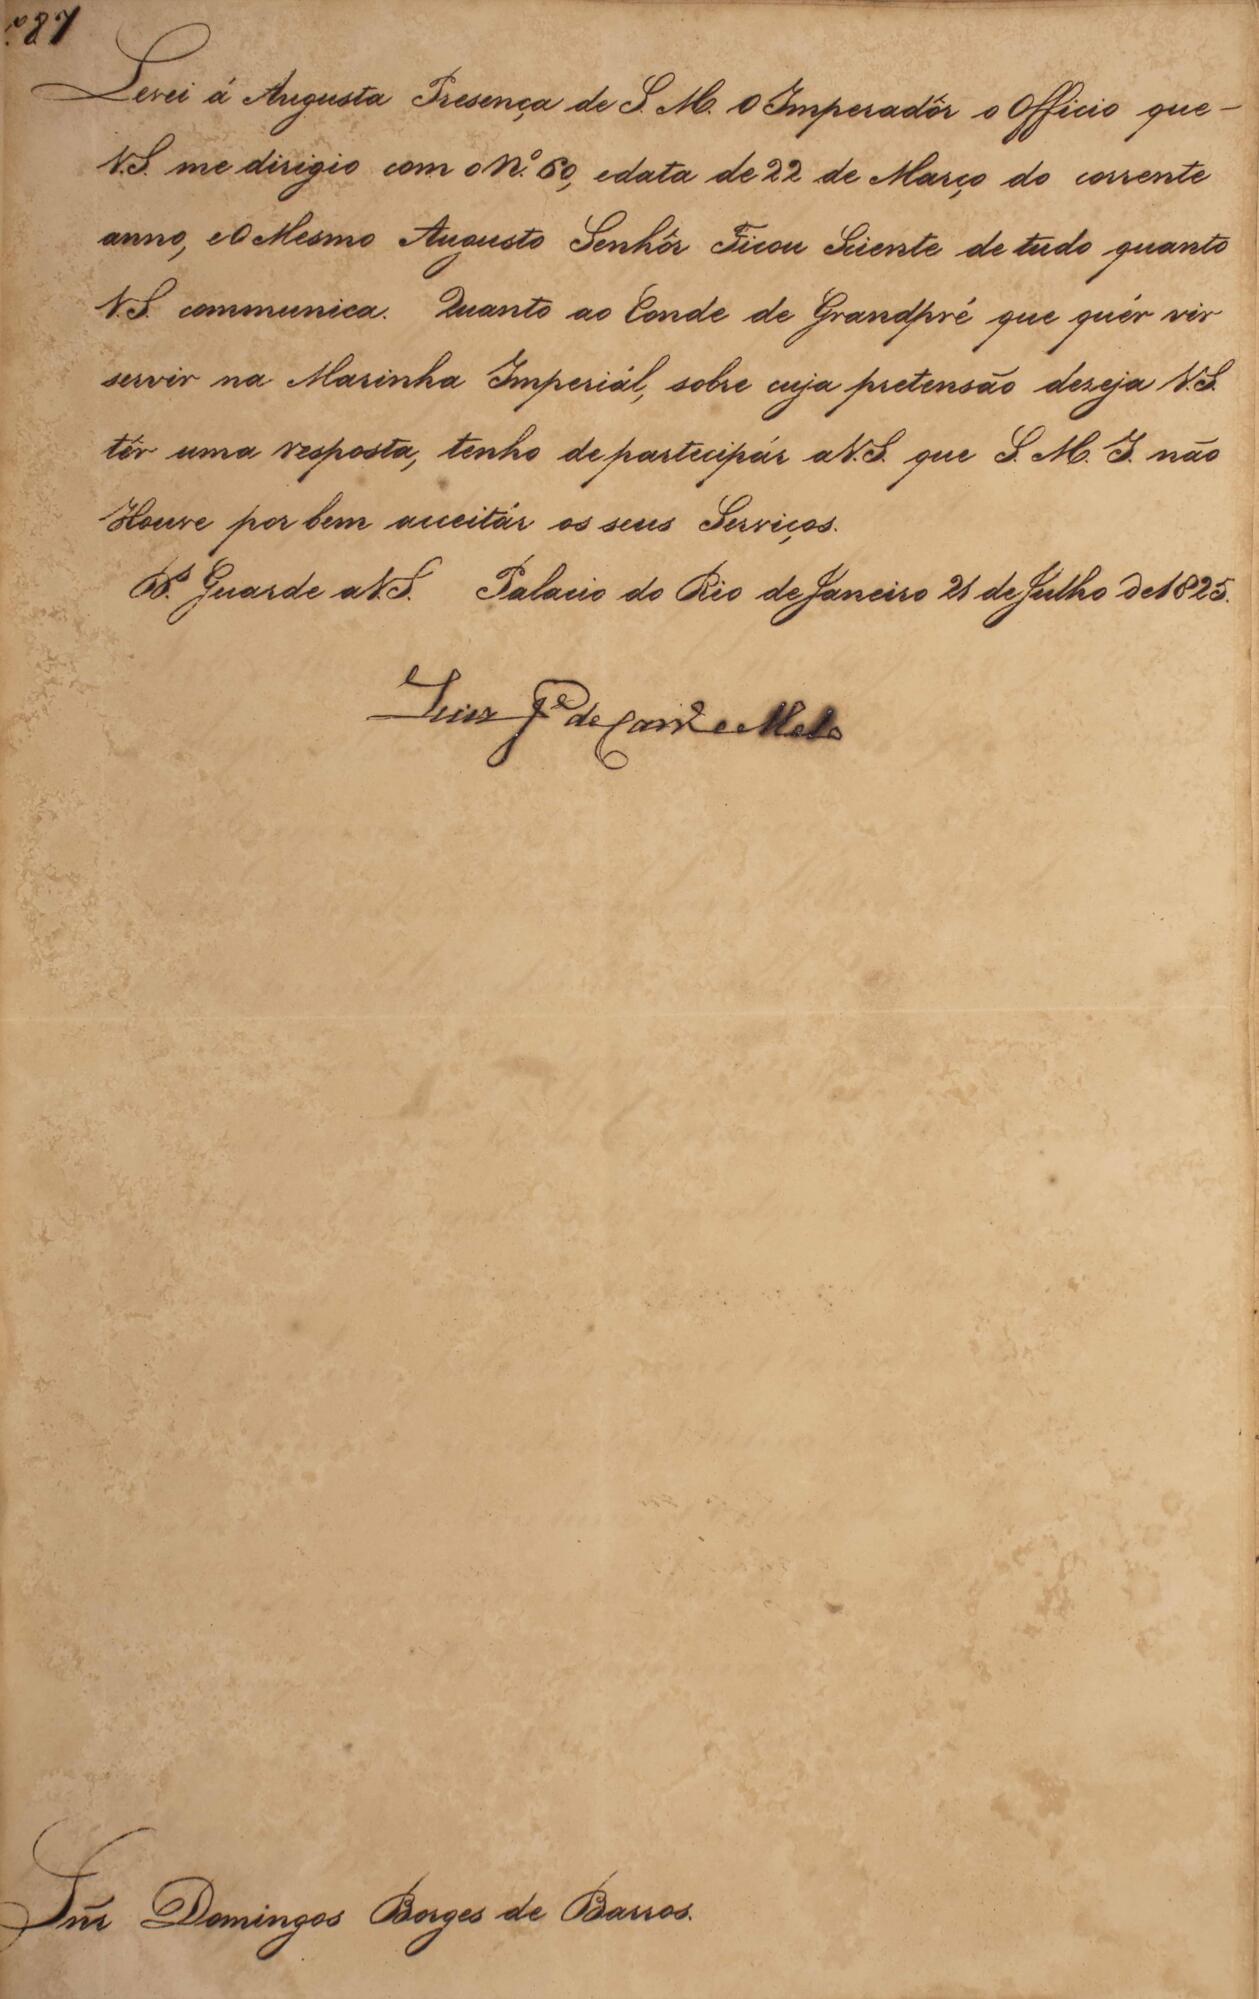 nº 87
Levei á Augusta Presença de S. M. O Imperadôr o Officio que
V.S. me dirigio com o Nº. 60, e data de 22 de Março do corrente
anno, e O Mesmo Augusto Senhôr Ficou Sciente de tudo quanto
V.S. communica. Quanto ao Conde de Grandpré que quér vir
servir na Marinha Imperiál, sobre cuja pretensão dezeja V.S.
têr uma resposta, tenho de partecipár a V.S. que S. M. I. não
Houve por bem acceitár os seus Serviços.
Ds. Guarde a V.S. Palacio do Rio de Janeiro 21 de Julho de 1825.
Luiz Je. de Carvo. e Mello
Snr. Domingos Borges de Barros.